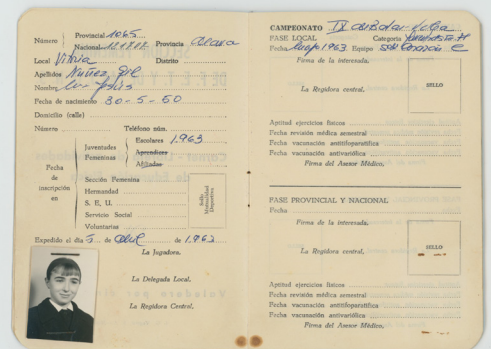 Número
Provincial 1065
Nacional Provincia Alava
Local Vitoria Distrito
Apellidos Núñez Gil
Nombre Jesús
Fecha de nacimiento 30-5-50
Domicilio (calle)
Número Teléfono núm.
Fecha de inscripción en
Juventudes Femeninas
Escolares 1.963
Aprendices
Afiliadas
Sección Femenina
Hermandad
S. E. U.
Servicio Social
Voluntarias
Sello Mutualidad Deportiva
Expedido el día 5 de Abril de 1.963
La Jugadora.
La Delegada Local.
La Regidora Central.
CAMPEONATO IX
FASE LOCAL Categoría
Fecha Mayo 1963 Equipo
Firma de la interesada.
SELLO
La Regidora central,
Aptitud ejercicios físicos
Fecha revisión médica semestral
Fecha vacunación antitifoparatifica
Fecha vacunación antivariólica
Firma del Asesor Médico,
FASE PROVINCIAL Y NACIONAL
Fecha
Firma de la interesada.
SELLO
La Regidora central,
Aptitud ejercicios físicos
Fecha revisión médica semestral
Fecha vacunación antitifoparatifica
Fecha vacunación antivariólica
Firma del Asesor Médico,